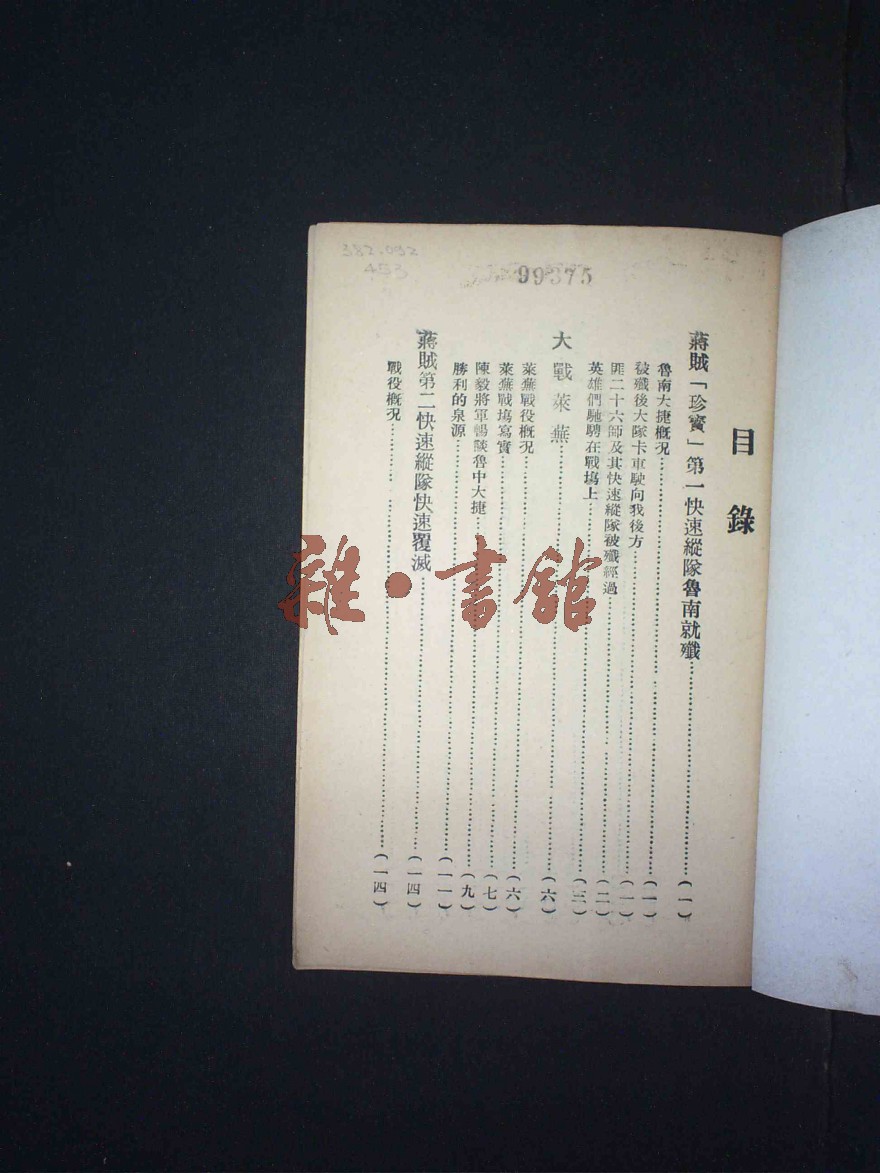 382.092
453
99375
目錄
蔣賊「珍寶」第一快速縱隊魯南就殲……(一)
魯南大捷概況……(一)
被殲後大隊卡車駛向我後方……(一)
匪二十六師及其快速縱隊被殲經過……(二)
英雄們馳騁在戰場上……(三)
大戰萊蕪……(六)
萊蕪戰役概況……(六)
萊蕪戰場寫實……(七)
陳毅將軍暢談魯中大捷……(九)
勝利的泉源……(一一)
蔣賊第二快速縱隊快速覆滅……(一四)
戰役概況……(一四)
雜·書館